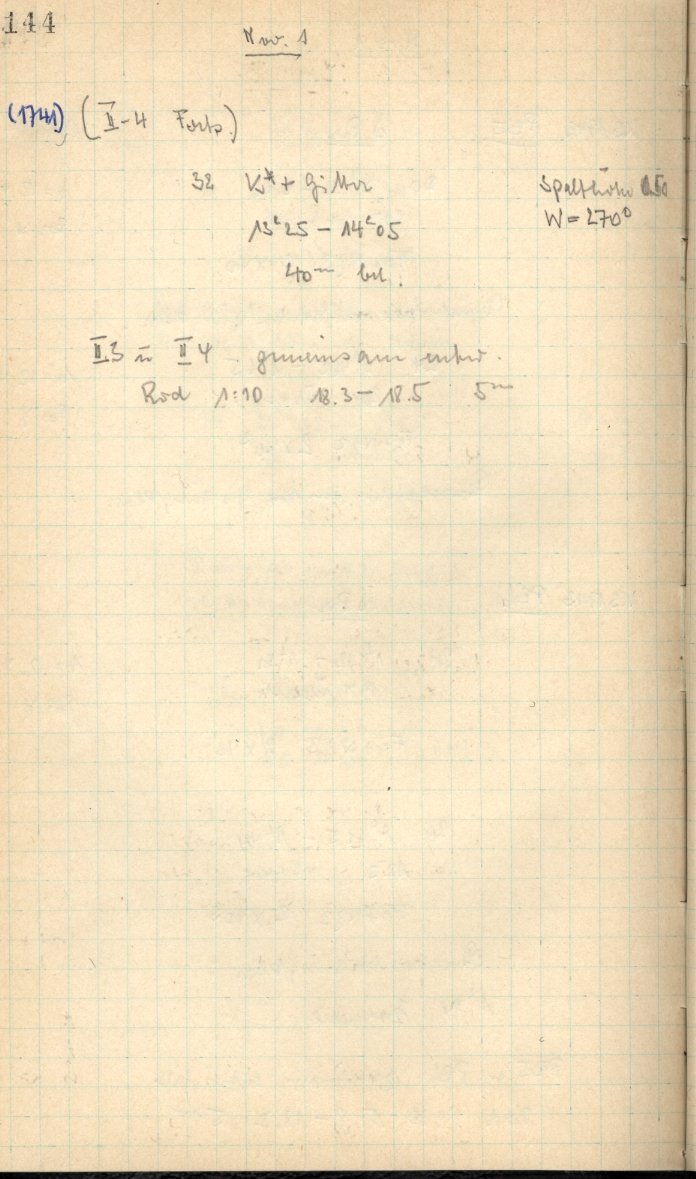 144
Nov. 1
(1741) (II-4 Forts.)
32 K* + Gitter
Spalthöhe 0.50
13 25 – 14 05
W = 270°
40m bel.
II3 u II4 gemeinsam entw.
Rod 1:10 18.3 – 18.5 5m